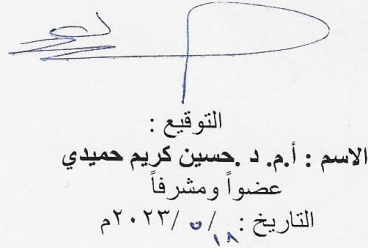 التوقيع :
الاسم : أ.م. د .حسين كريم حميدي
عضواً ومشرفاً
التاريخ : ١٨/ ٥ /٢٠٢٣م